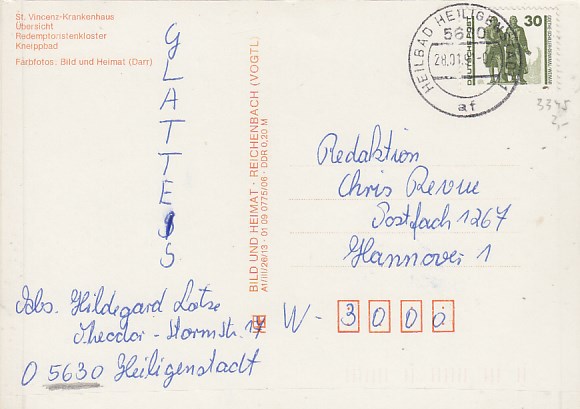 St. Vincenz-Krankenhaus
Übersicht
Redemptoristenkloster
Kneippbad
Farbfotos: Bild und Heimat (Darr)
GLATTEIS
BILD UND HEIMAT · REICHENBACH (VOGTL)
A1/III/26/13 · 01 09 0775/06 · DDR 0,20 M
HEILBAD HEILIGENSTADT
5630
28.01.9
af
DEUTSCHE POST
30
3345
2,-
Redaktion
Chris Revue
Postfach 1267
Hannover 1
W - 3000
Abs. Hildegard Lotze
Theodor-Stormstr. 17
O 5630 Heiligenstadt